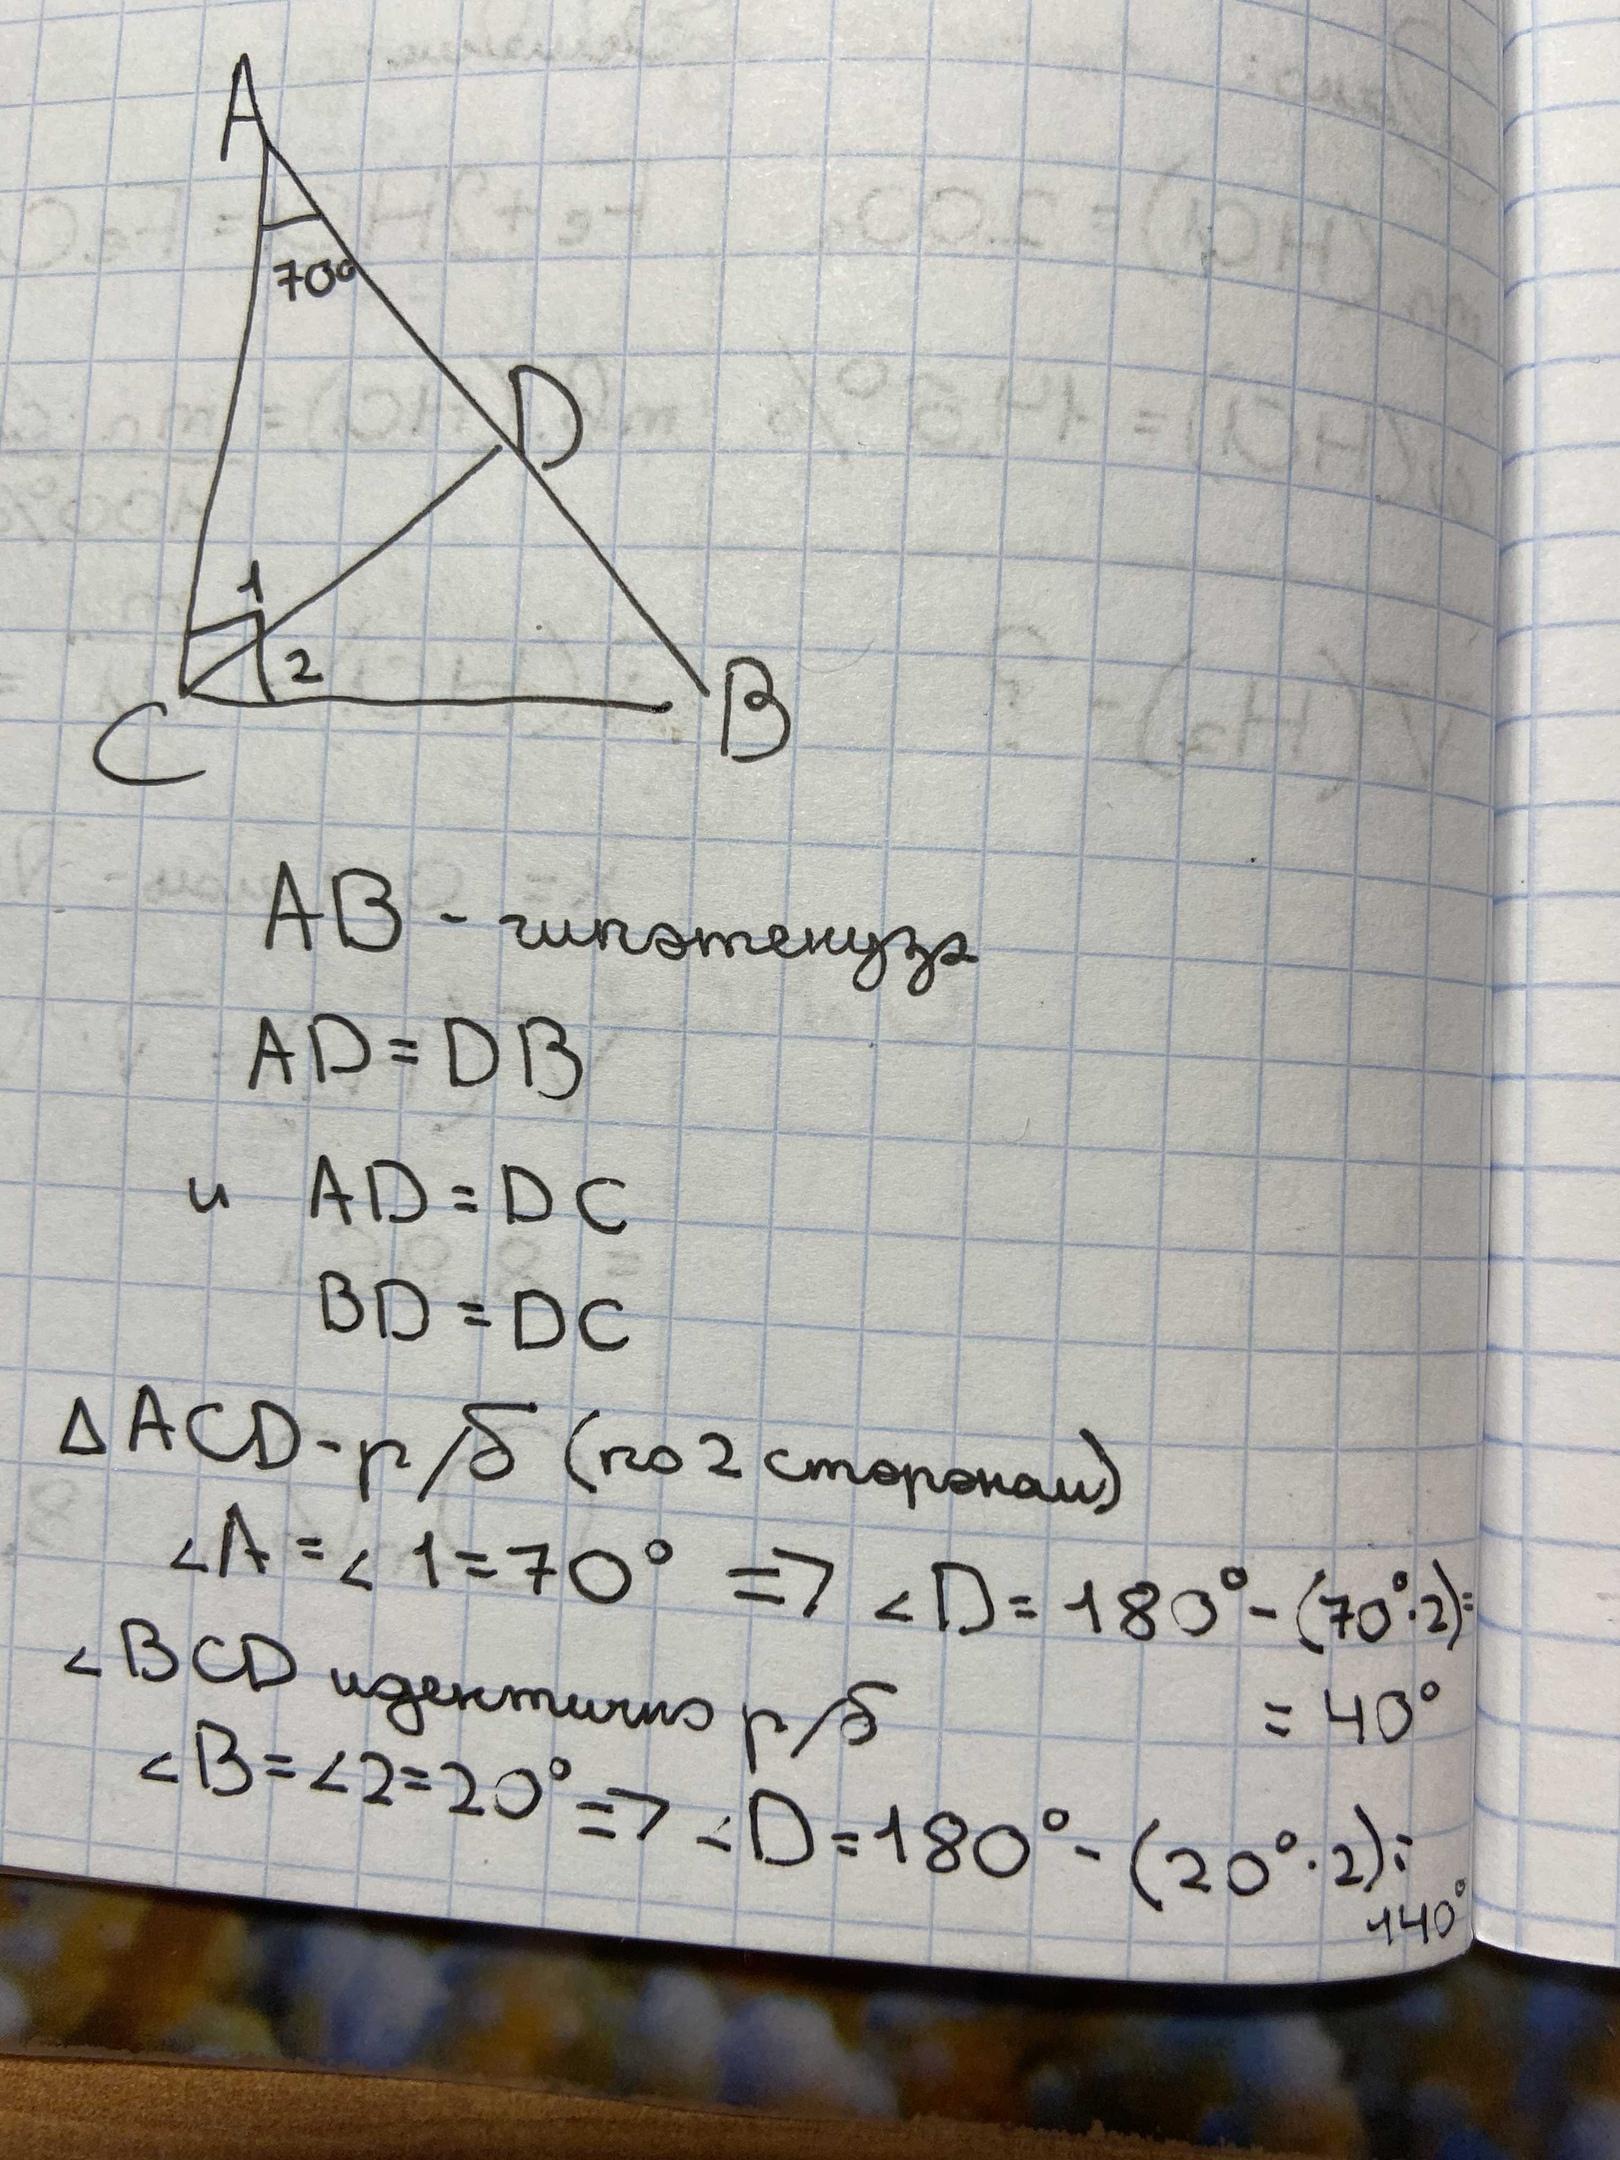 A
70°
D
1
2
C
B
AB - гипотенуза
AD = DB
и AD = DC
BD = DC
ΔACD - р/б (по 2 сторонам)
∠A = ∠1 = 70° => ∠D = 180° - (70°·2) =
= 40°
∠BCD идентично р/б
∠B = ∠2 = 20° => ∠D = 180° - (20°·2) =
140°